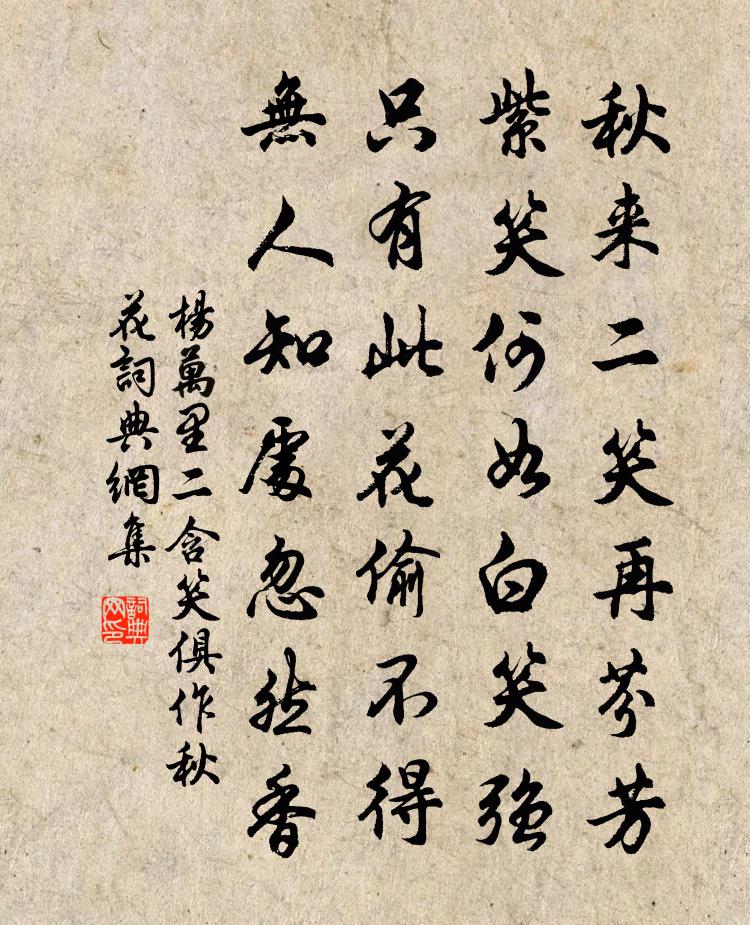 秋来二笑再芬芳
紫笑何如白笑強
只有此花偷不得
無人知處忽然香
楊萬里二含笑俱作秋
花詞典網集
詞典網印